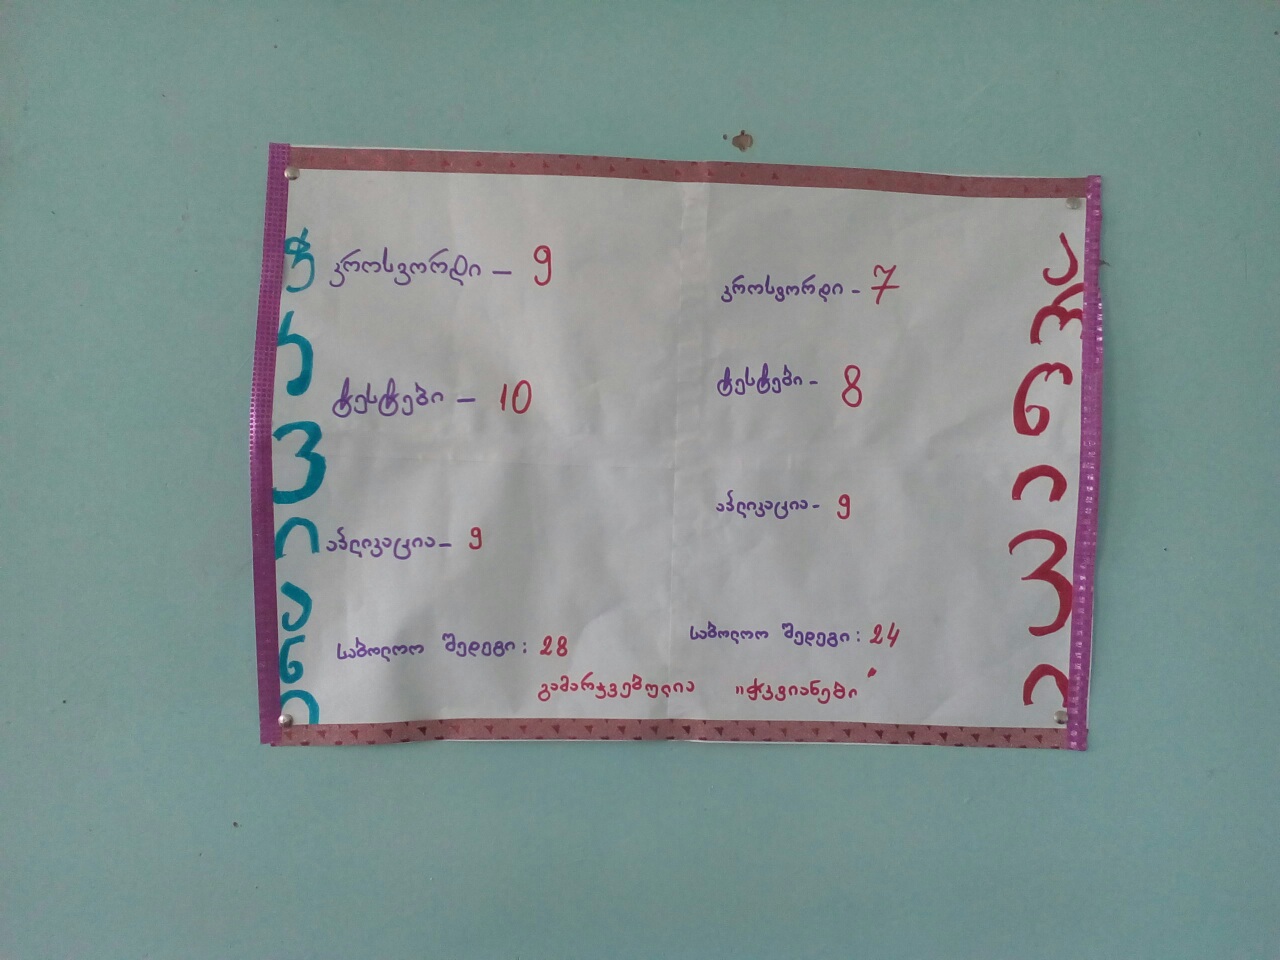 ჭკვიანი
კროსვორდი - 9
ტესტები - 10
აპლიკაცია - 9
საბოლოო შედეგი: 28
კროსვორდი - 7
ტესტები - 8
აპლიკაცია - 9
საბოლოო შედეგი: 24
გამარჯვებულია "ჭკვიანები"